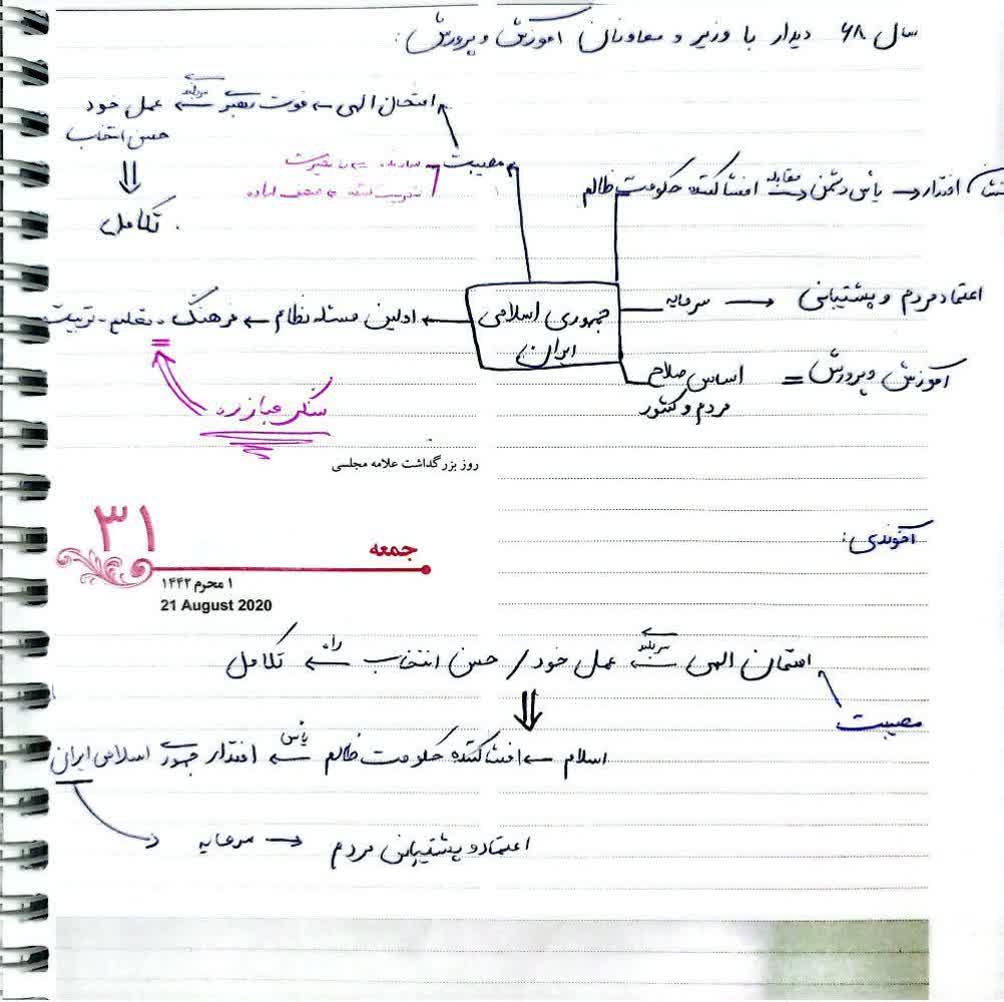 سال ۶۸ دیدار با وزیر و معاونان آموزش و پرورش:
امتحان الهی ← فوت رهبر ← سربلند عمل خود
حسن انتخاب
⇓
تکامل.
مصیبت
سازنده
نشان اقتدار ← یأس دشمن ← مقابله افشاکننده حکومت ظالم
اعتماد مردم و پشتیبانی ← سرمایه
جمهوری اسلامی
ایران
اولین مسئله نظام ← فرهنگ - تعلیم - تربیت
آموزش و پرورش = اساس صلاح
مردم و کشور
سنگر مبارزه
روز بزرگداشت علامه مجلسی
۳۱
جمعه
۱ محرم ۱۴۴۲
21 August 2020
آخوندی:
مصیبت
امتحان الهی ← سربلند عمل خود / حسن انتخاب ← راه تکامل
⇓
اسلام ← افشاکننده حکومت ظالم ← یأس اقتدار جمهوری اسلامی ایران
اعتماد و پشتیبانی مردم ← سرمایه